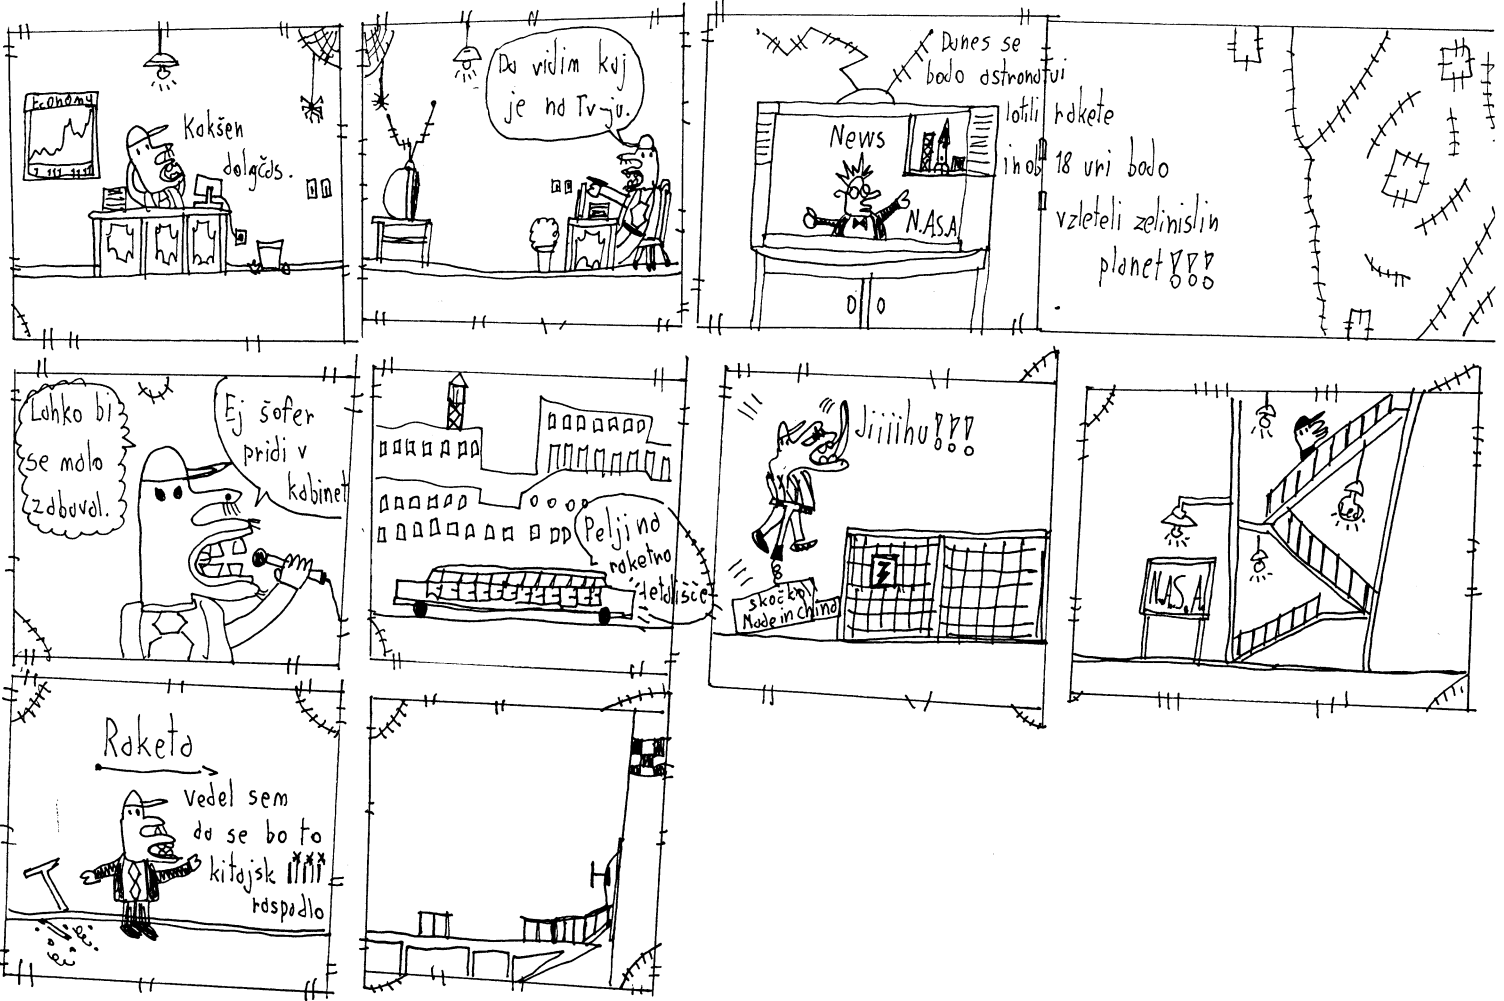 Economy
Kakšen
dolgčas.
Da vidim kaj
je na Tv-ju.
Danes se
bodo astronatvi
lotili rakete
in ob 18 uri bodo
vzleteli zelinislin
planet!!!
News
N.A.S.A
Lahko bi
se malo
zabaval.
Ej šofer
pridi v
kabinet
Pelji na
raketno
letališče
Jiiiihu!!!
skočko
Made in China
Led
N.A.S.A.
Raketa
vedel sem
da se bo to
kitajsk
raspadlo